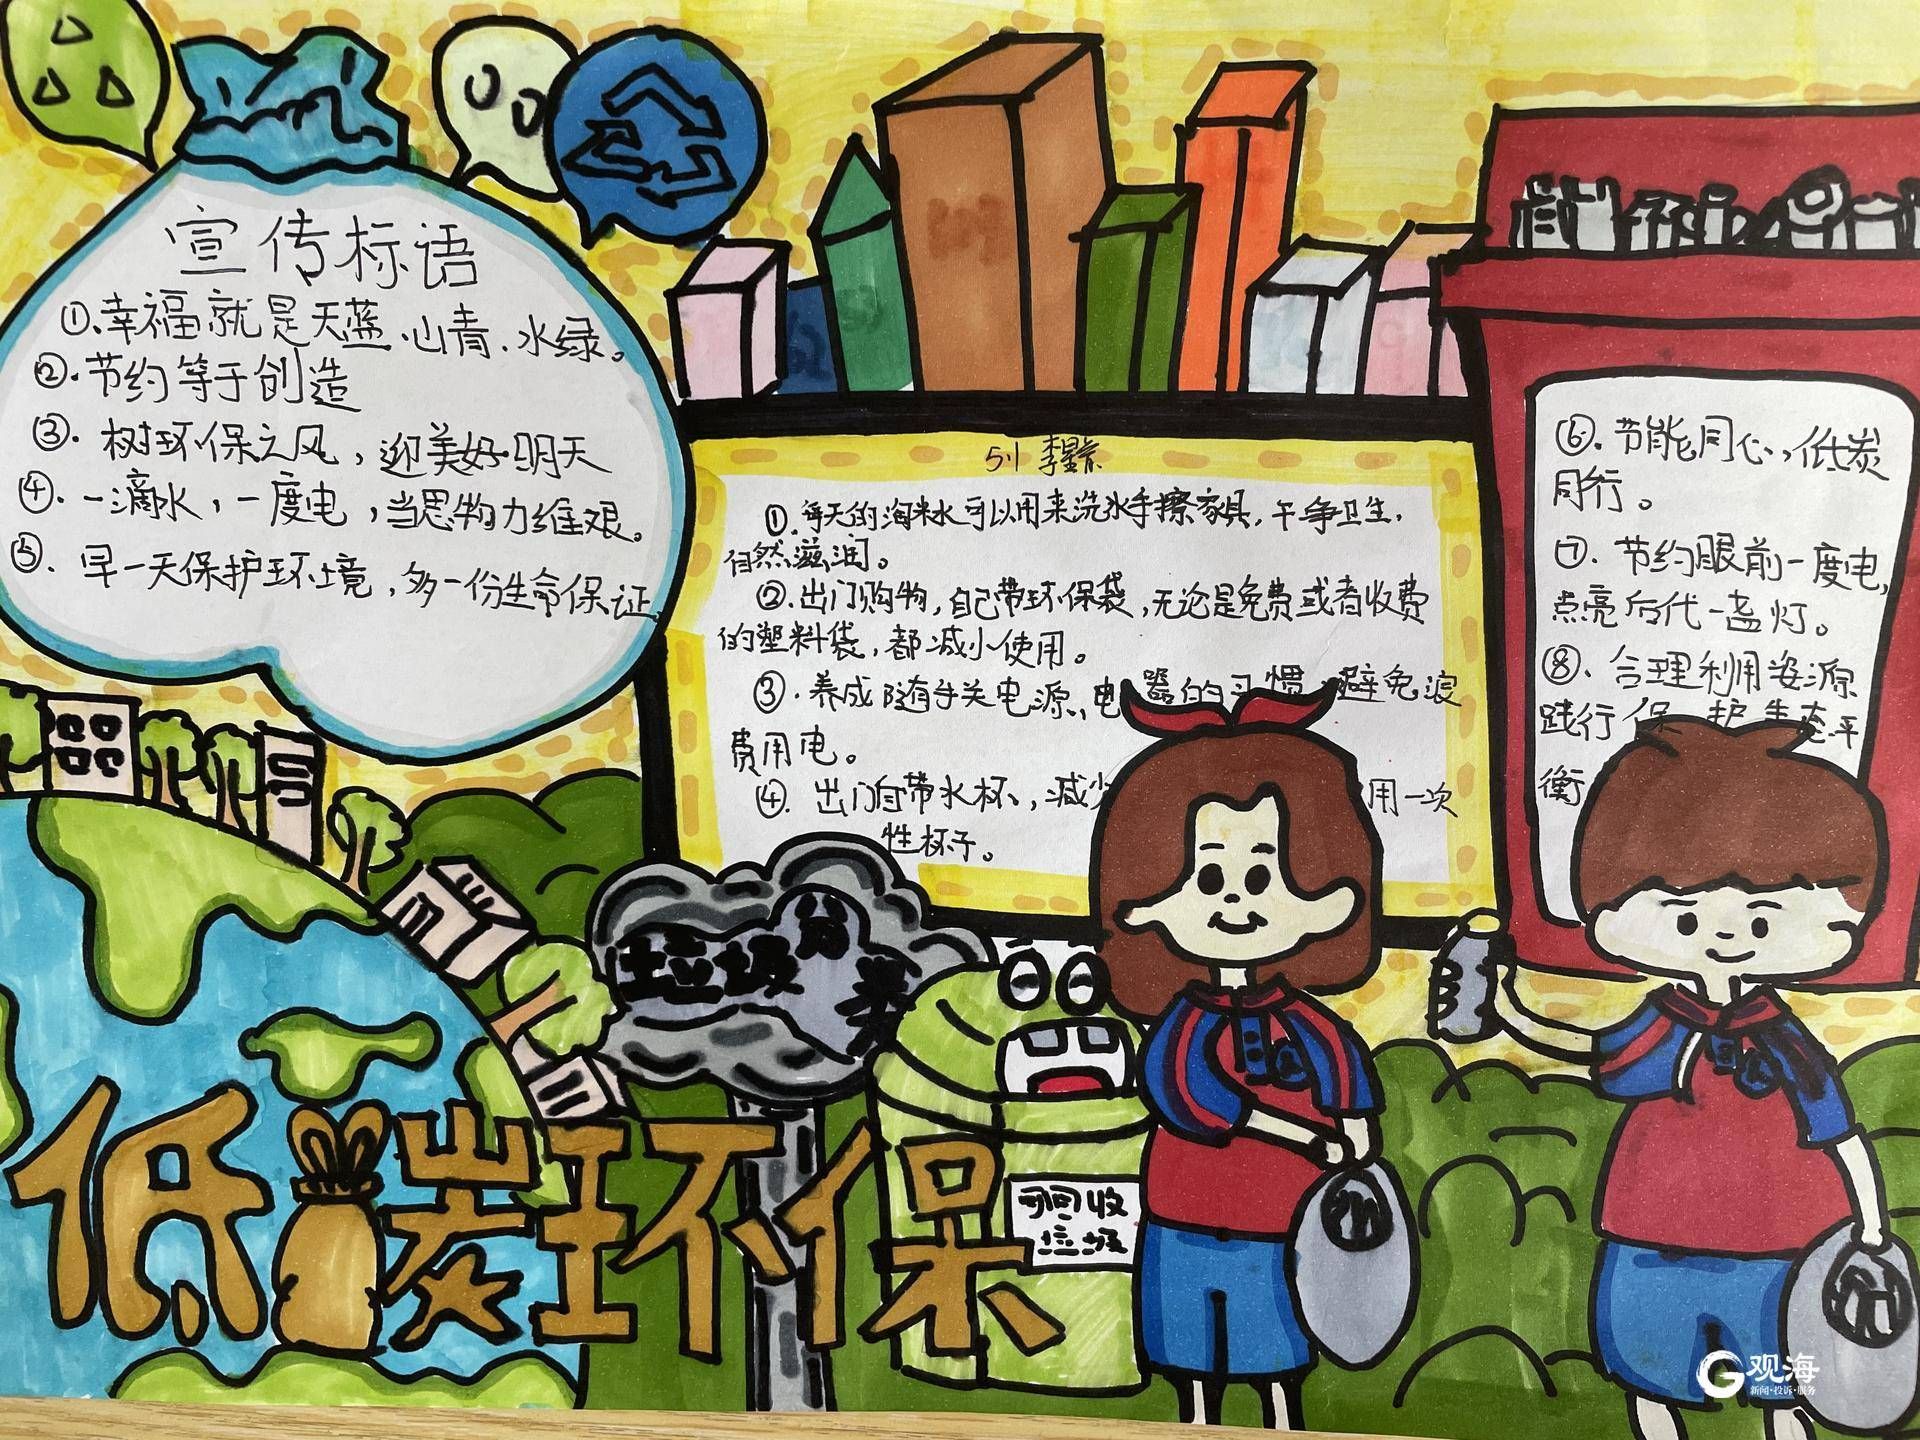 宣传标语
①.幸福就是天蓝.山青.水绿。
②.节约等于创造
③.树环保之风,迎美好明天
④.一滴水,一度电,当思物力维艰。
⑤.早一天保护环境,多一份生命保证
5.1 李
①.每天的淘米水可以用来洗水手擦家具,干争卫生,
自然滋润。
②.出门购物,自己带环保袋,无论是免费或者收费
的塑料袋,都减小使用。
③.养成随手关电源,电器的习惯,避免浪
费用电。
④.出门自带水杯,减少用一次
性杯子。
⑥.节能同心,低炭
同行。
⑦.节约眼前一度电,
点亮后代一盏灯。
⑧.合理利用姿源
践行保护生态平
衡
垃圾分类
可回收
垃圾
低碳环保
观海
新闻·投诉·服务